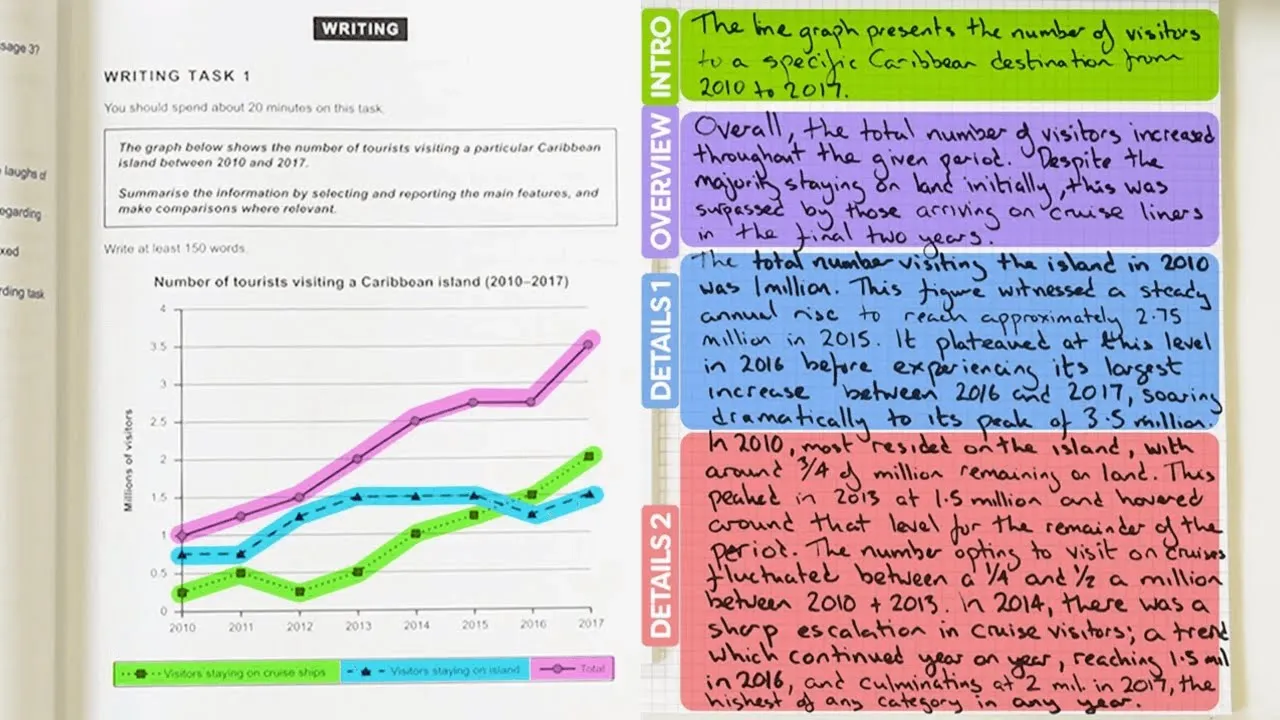 sage 3?
laughs d
egarding
xed
rding task
WRITING
WRITING TASK 1
You should spend about 20 minutes on this task.
The graph below shows the number of tourists visiting a particular Caribbean
island between 2010 and 2017.
Summarise the information by selecting and reporting the main features, and
make comparisons where relevant.
Write at least 150 words.
Number of tourists visiting a Caribbean island (2010–2017)
Millions of visitors
4
3.5
3
2.5
2
1.5
1
0.5
0
2010 2011 2012 2013 2014 2015 2016 2017
Visitors staying on cruise ships Visitors staying on island Total
INTRO
The line graph presents the number of visitors
to a specific Caribbean destination from
2010 to 2017.
OVERVIEW
Overall, the total number of visitors increased
throughout the given period. Despite the
majority staying on land initially, this was
surpassed by those arriving on cruise liners
in the final two years.
DETAILS 1
The total number visiting the island in 2010
was 1million. This figure witnessed a steady
annual rise to reach approximately 2.75
million in 2015. It plateaued at this level
in 2016 before experiencing its largest
increase between 2016 and 2017, soaring
dramatically to its peak of 3.5 million.
DETAILS 2
In 2010, most resided on the island, with
around 3/4 of million remaining on land. This
peaked in 2013 at 1.5 million and hovered
around that level for the remainder of the
period. The number opting to visit on cruises
fluctuated between a 1/4 and 1/2 a million
between 2010 + 2013. In 2014, there was a
sharp escalation in cruise visitors; a trend
which continued year on year, reaching 1.5 mil
in 2016, and culminating at 2 mil. in 2017, the
highest of any category in any year.